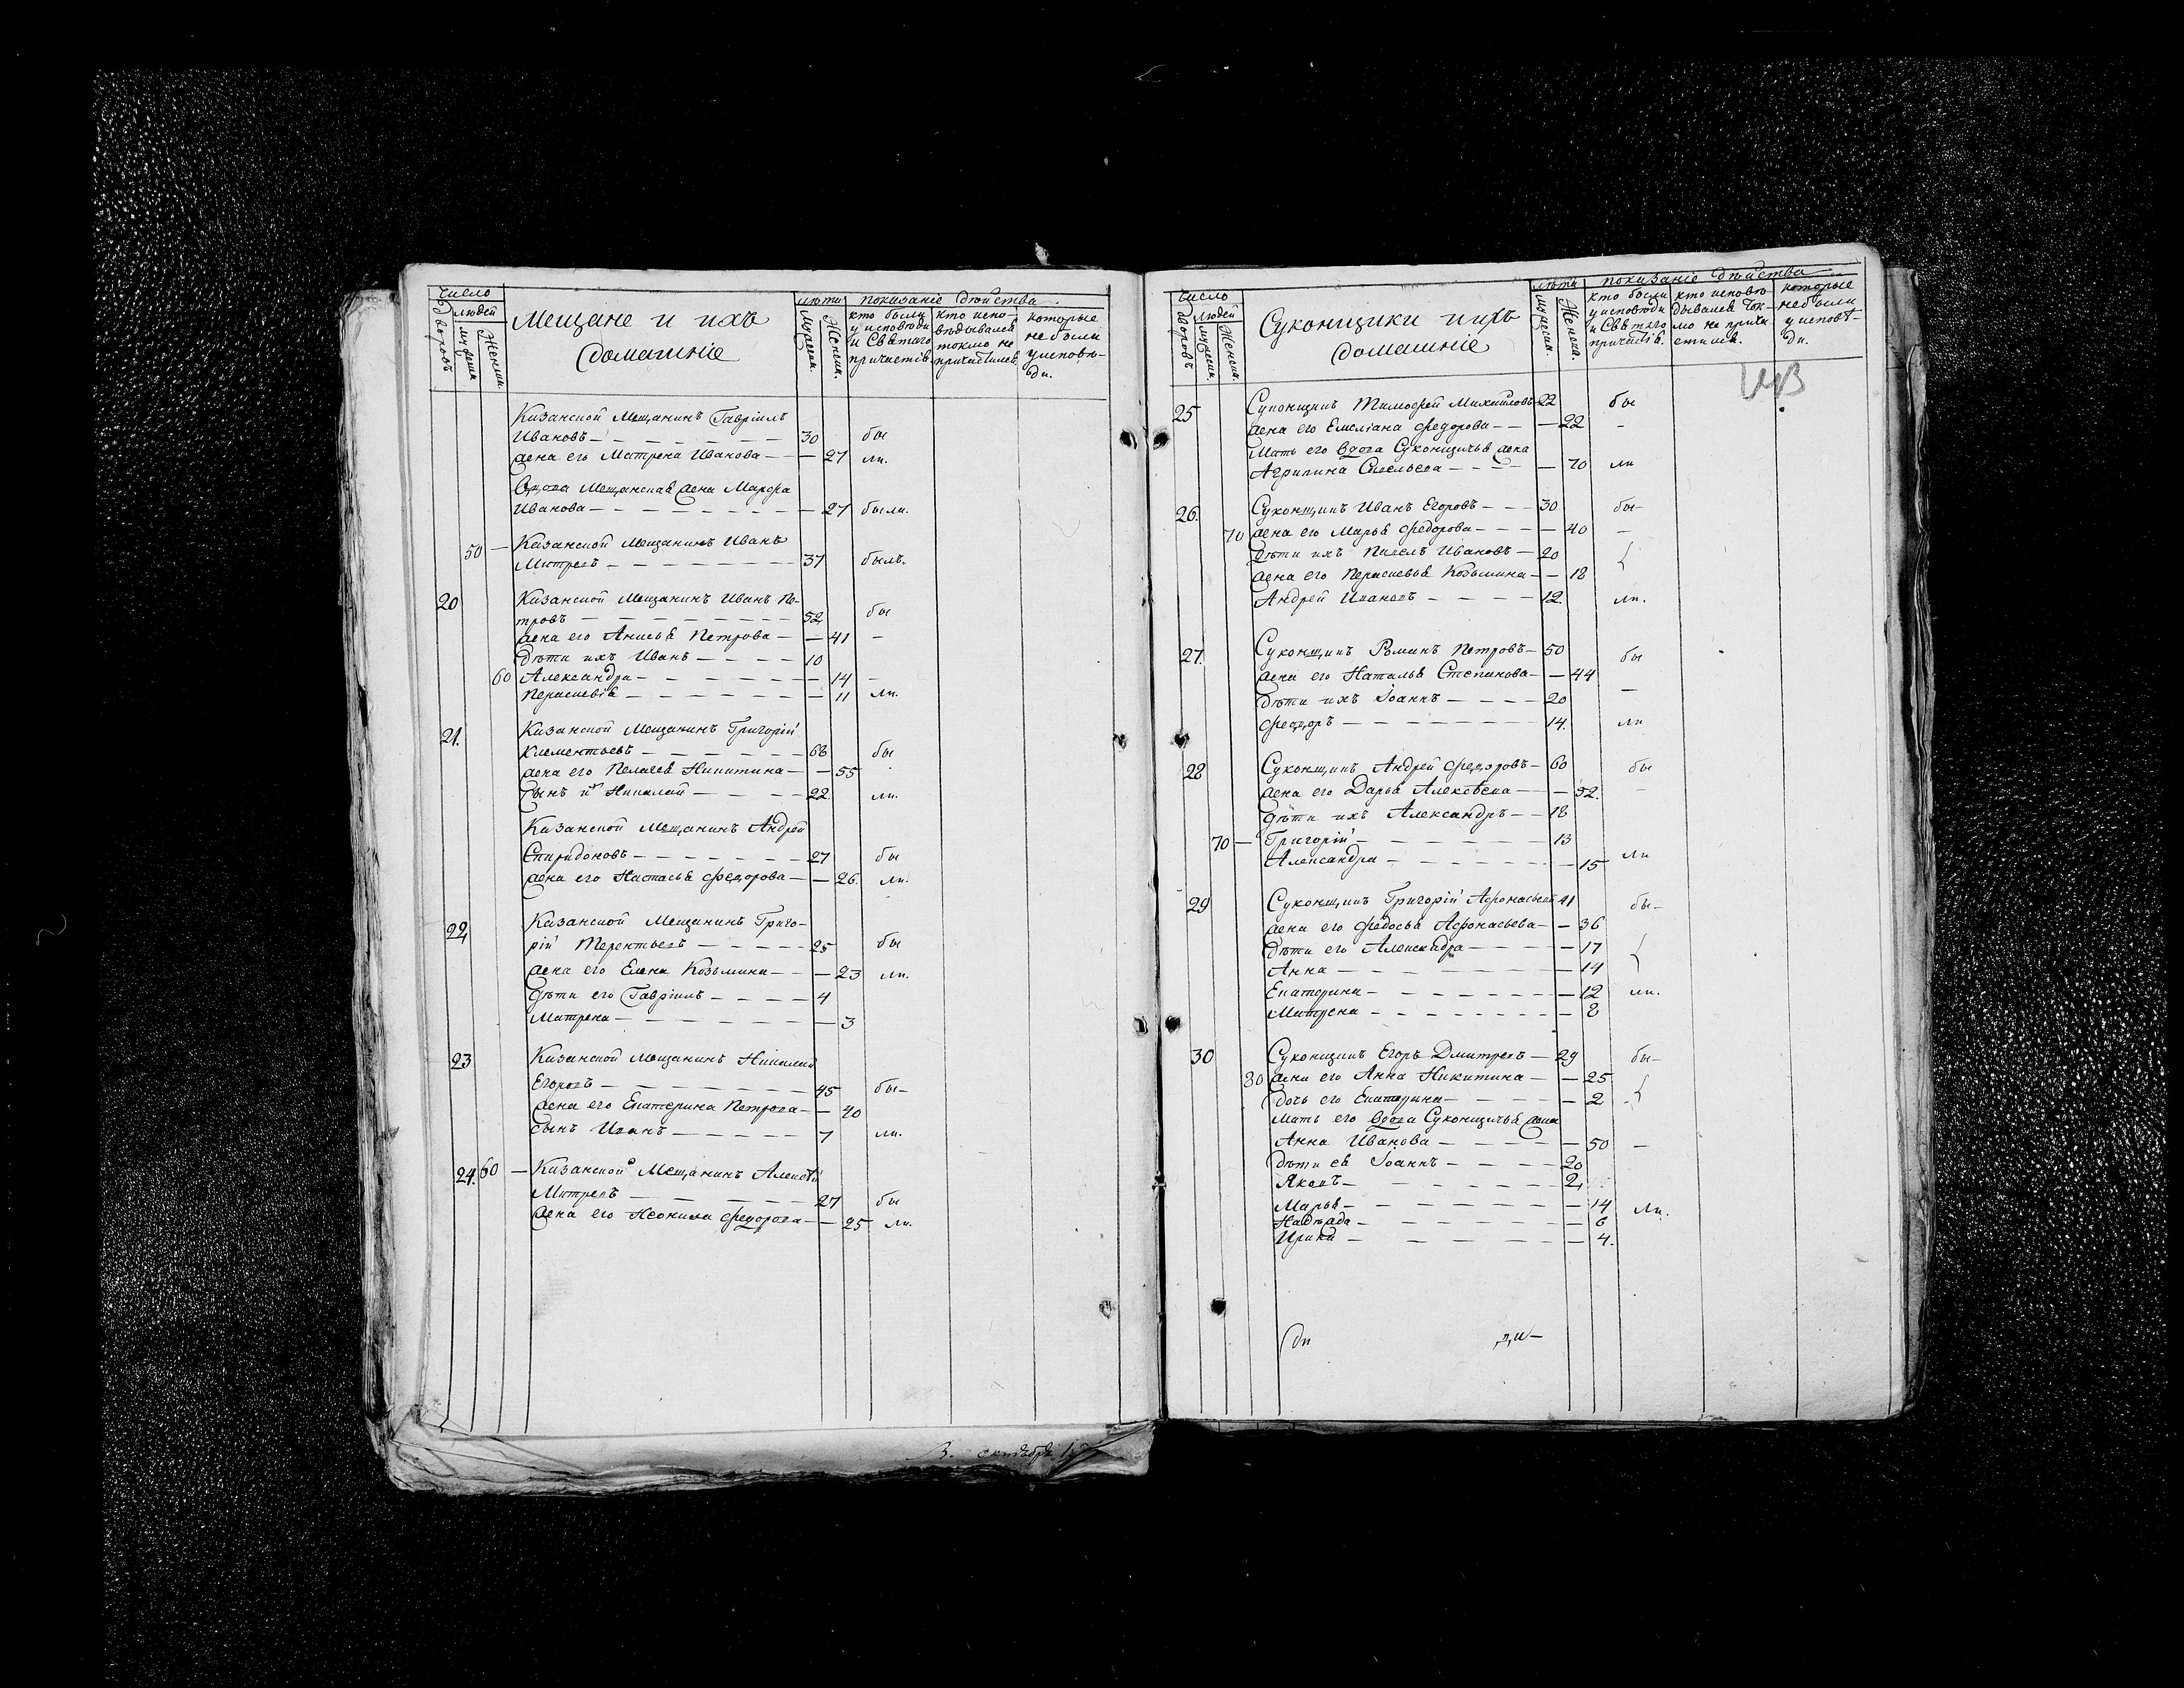 Число
людей
Дворовъ
мужеска
Женска.
Мещане и ихъ
домашніе
лѣта
Мужеска.
Женска.
показаніе дѣйства
кто были
у исповѣди
и Святаго
причастія.
кто испо-
вѣдывался
токмо не
причастился.
которые
небыли
уисповѣ-
ди.
Казанской Мещанинъ Гавріилъ
Ивановъ — 30 бы
жена его Матрена Иванова — — 27 ли.
Вдова Мещанская жена Марфа
Иванова — — 27 были.
50 — Казанской Мещанинъ Иванъ
Митревъ — 37 былъ.
20 Казанской Мещанинъ Иванъ Пе-
тровъ — 52 бы
жена его Анисья Петрова — — 41 –
дѣти ихъ Иванъ — 10
60 Александра — — 14 –
Перасковія — — 11 ли.
21. Казанской Мещанинъ Григорій
Клементьевъ — 68 бы
жена его Пелагея Никитина — — 55
сынъ их Николай — 22 ли.
Казанской Мещанинъ Андрей
Спиридоновъ — 27 бы
жена его Настасья Федорова — — 26. ли.
22 Казанской Мещанинъ Григо-
рій Терентьевъ — 25 бы
жена его Елена Козьмина — — 23 ли.
дѣти его Гавріилъ — 4
Матрена — — 3
23 Казанской Мещанинъ Николай
Егоровъ — 45 бы–
жена его Екатерина Петрова — — 40
сынъ Иванъ — 7 ли.
24. 60 — Казанской Мещанинъ Алексѣй
Митревъ — 27 бы
жена его Неонила Федорова — — 25 ли.
Число
людей
Дворовъ
мужеска.
Женска.
Суконщики иихъ
домашніе
лѣта
мужеска.
Женска.
показаніе дѣйства
кто были
у исповѣди
и Святаго
причастія.
кто исповѣ
дывался ток-
мо не прича
стился.
которые
небыли
у исповѣ-
ди.
25 Суконщикъ Тимофей Михайловъ 22 бы
жена его Емеліана Федорова — — 22 –
Мать его вдова Суконщичья жена
Агрипина Савельева — — 70 ли
26. Суконщикъ Иванъ Егоровъ — 30 бы–
70 жена его Марья Федорова — — 40 —
дѣти ихъ Павелъ Ивановъ — 20
жена его Перасковья Козьмина — — 18
Андрей Ивановъ — 12. ли.
27. Суконщикъ Романъ Петровъ — 50 бы
жена его Наталья Степанова — — 44 —
дѣти ихъ Іоаннъ — 20
Федоръ — 14. ли
28 Суконщикъ Андрей Федоровъ — 60 бы
жена его Дарья Алексѣева — — 52. –
дѣти ихъ Александръ — 18
70 — Григорій — 13
Александра — — 15 ли
29 Суконщикъ Григорій Афонасьевъ 41 бы–
жена его Федосья Афонасьева — — 36
дѣти его Александра — — 17
Анна — — 14
Екатерина — — 12 ли.
Матрена — — 8
30 Суконщикъ Егоръ Дмитревъ — 29 бы–
80 жена его Анна Никитина — — 25
дочь его Екатерина — — 2
Мать его вдова Суконщичья жена
Анна Иванова — — 50 —
дѣти ея Іоаннъ — 20
Яковъ — 2
Марья — — 14 ли.
Надѣжда — — 6
Ирина — — 4.